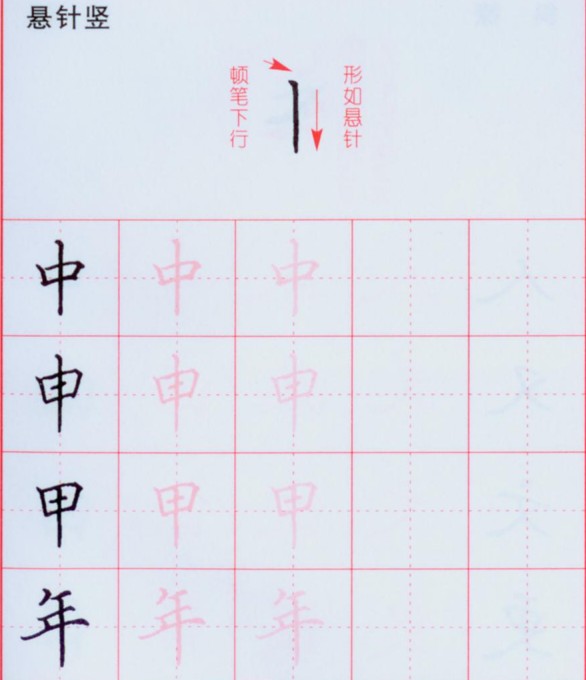 悬针竖
顿笔下行
形如悬针
中 中 中
申 申 申
甲 甲 甲
年 年 年